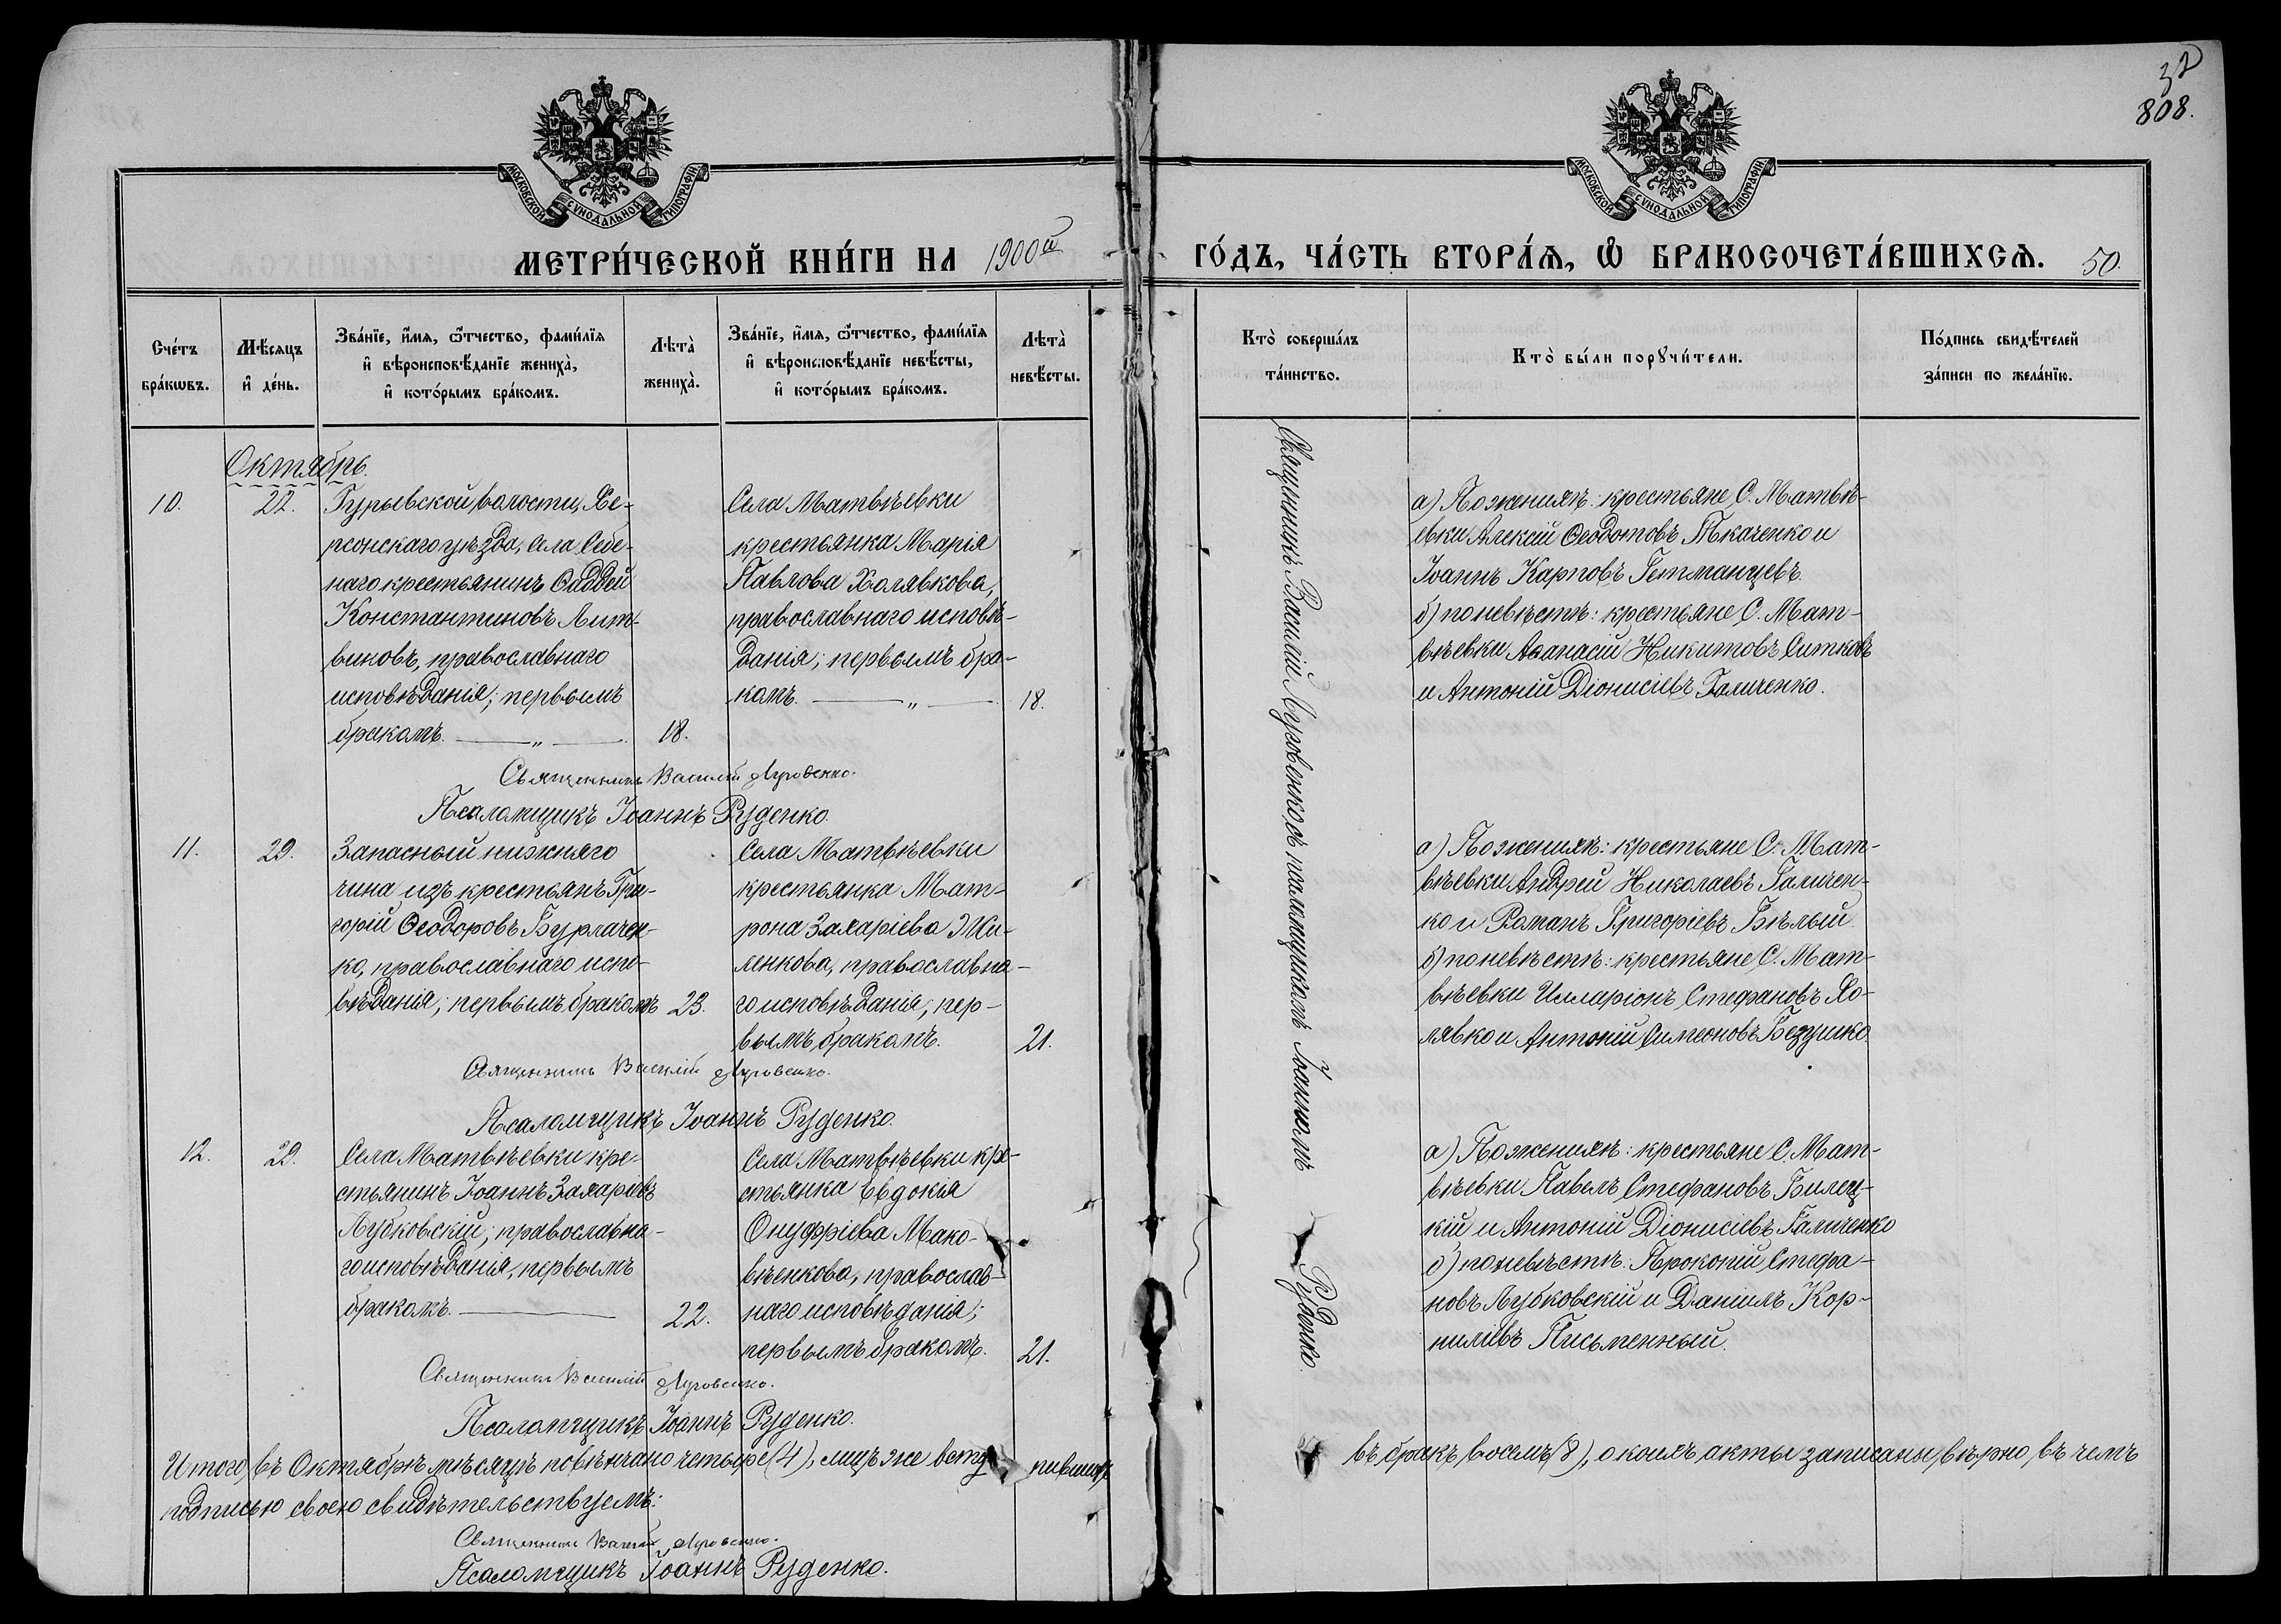 32
808.
МОСКОВСКОЙ СѴНОДАЛЬНОЙ ТИПОГРАФІИ
МОСКОВСКОЙ СѴНОДАЛЬНОЙ ТИПОГРАФІИ
МЕТРИ́ЧЕСКОЙ КНИ́ГИ НА 1900й ГО́ДЪ, ЧА́СТЬ ВТОРА́Ѧ, Ѡ҆ БРАКОСОЧЕТА́ВШИХСѦ. 50.
Сче́тъ бра́кѡвъ.
Мѣ́сяцъ и҆ де́нь.
Зва́нїе, и҆́мѧ, ѻ҆́тчество, фами́лїѧ
и҆ вѣроисповѣ́данїе жениха̀,
и҆ кото́рымъ бра́комъ.
Лѣта̀ жениха̀.
Зва́нїе, и҆́мѧ, ѻ҆́тчество, фами́лїѧ
и҆ вѣроисповѣ́данїе невѣ́сты,
и҆ кото́рымъ бра́комъ.
Лѣта̀ невѣ́сты.
Кто̀ соверша́лъ та́инство.
Кто̀ бы́ли порꙋчи́тели.
По́дпись свидѣ́телей за́писи по жела́нїю.
Октябрь.
10.
22.
Гурьевской волости, Хе-
рсонскаго уѣзда, села Себе-
наго крестьянинъ Фаддей
Константиновъ Лит-
виновъ, православнаго
исповѣданія; первымъ
бракомъ. — „ —
18.
Села Матвѣевки
крестьянка Марія
Павлова Холявкова,
православнаго исповѣ-
данія; первымъ бра-
комъ. — „ —
18.
а) По женихѣ: крестьяне С. Матвѣ-
евки Алексій Ѳеодотовъ Ткаченко и
Іоаннъ Карповъ Гетманцевъ.
б) по невѣстѣ: крестьяне С. Мат-
вѣевки Аѳанасій Никитовъ Ситковъ
и Антоній Діонисіевъ Галиченко.
Священникъ Василій Луговенко.
Псаломщикъ Іоаннъ Руденко.
11.
29.
Запасный нижняго
чина изъ крестьянъ Гри-
горій Ѳеодоровъ Бурлачен-
ко, православнаго испо-
вѣданія; первымъ бракомъ
23.
Села Матвѣевки
крестьянка Мат-
рона Захаріева Жи-
ленкова, православна-
го исповѣданія; пер-
вымъ бракомъ.
21.
а) По женихѣ: крестьяне С. Мат-
вѣевки Андрей Николаевъ Галичен-
ко и Романъ Григоріевъ Бѣлый.
б) по невѣстѣ: крестьяне С. Мат-
вѣевки Илларіонъ Стефановъ Хо-
лявко и Антоній Симеоновъ Безушко.
Священникъ Василій Луговенко.
Псаломщикъ Іоаннъ Руденко.
12.
29.
Села Матвѣевки кре-
стьянинъ Іоаннъ Захаріевъ
Лубковскій; православна-
го исповѣданія, первымъ
бракомъ. —
22.
Села Матвѣевки кре-
стьянка Евдокія
Онуфріева Мако-
вѣенкова, православ-
наго исповѣданія;
первымъ бракомъ.
21.
а) По женихѣ: крестьяне С. Мат-
вѣевки Павелъ Стефановъ Билец-
кій и Антоній Діонисіевъ Галиченко
б) по невѣстѣ: Прокопій Стефа-
новъ Лубковскій и Даніилъ Кор-
ниліевъ Письменный.
Священникъ Василій Луговенко.
Псаломщикъ Іоаннъ Руденко.
Священникъ Василій Луговенко съ псаломщикомъ Іоанномъ Руденко.
Итого въ Октябрѣ мѣсяцѣ повѣнчано четыре (4), лицъ же вступившихъ въ бракъ восемь (8), о коихъ акты записаны вѣрно, въ чемъ
подписью своею свидѣтельствуемъ:
Священникъ Василій Луговенко.
Псаломщикъ Іоаннъ Руденко.